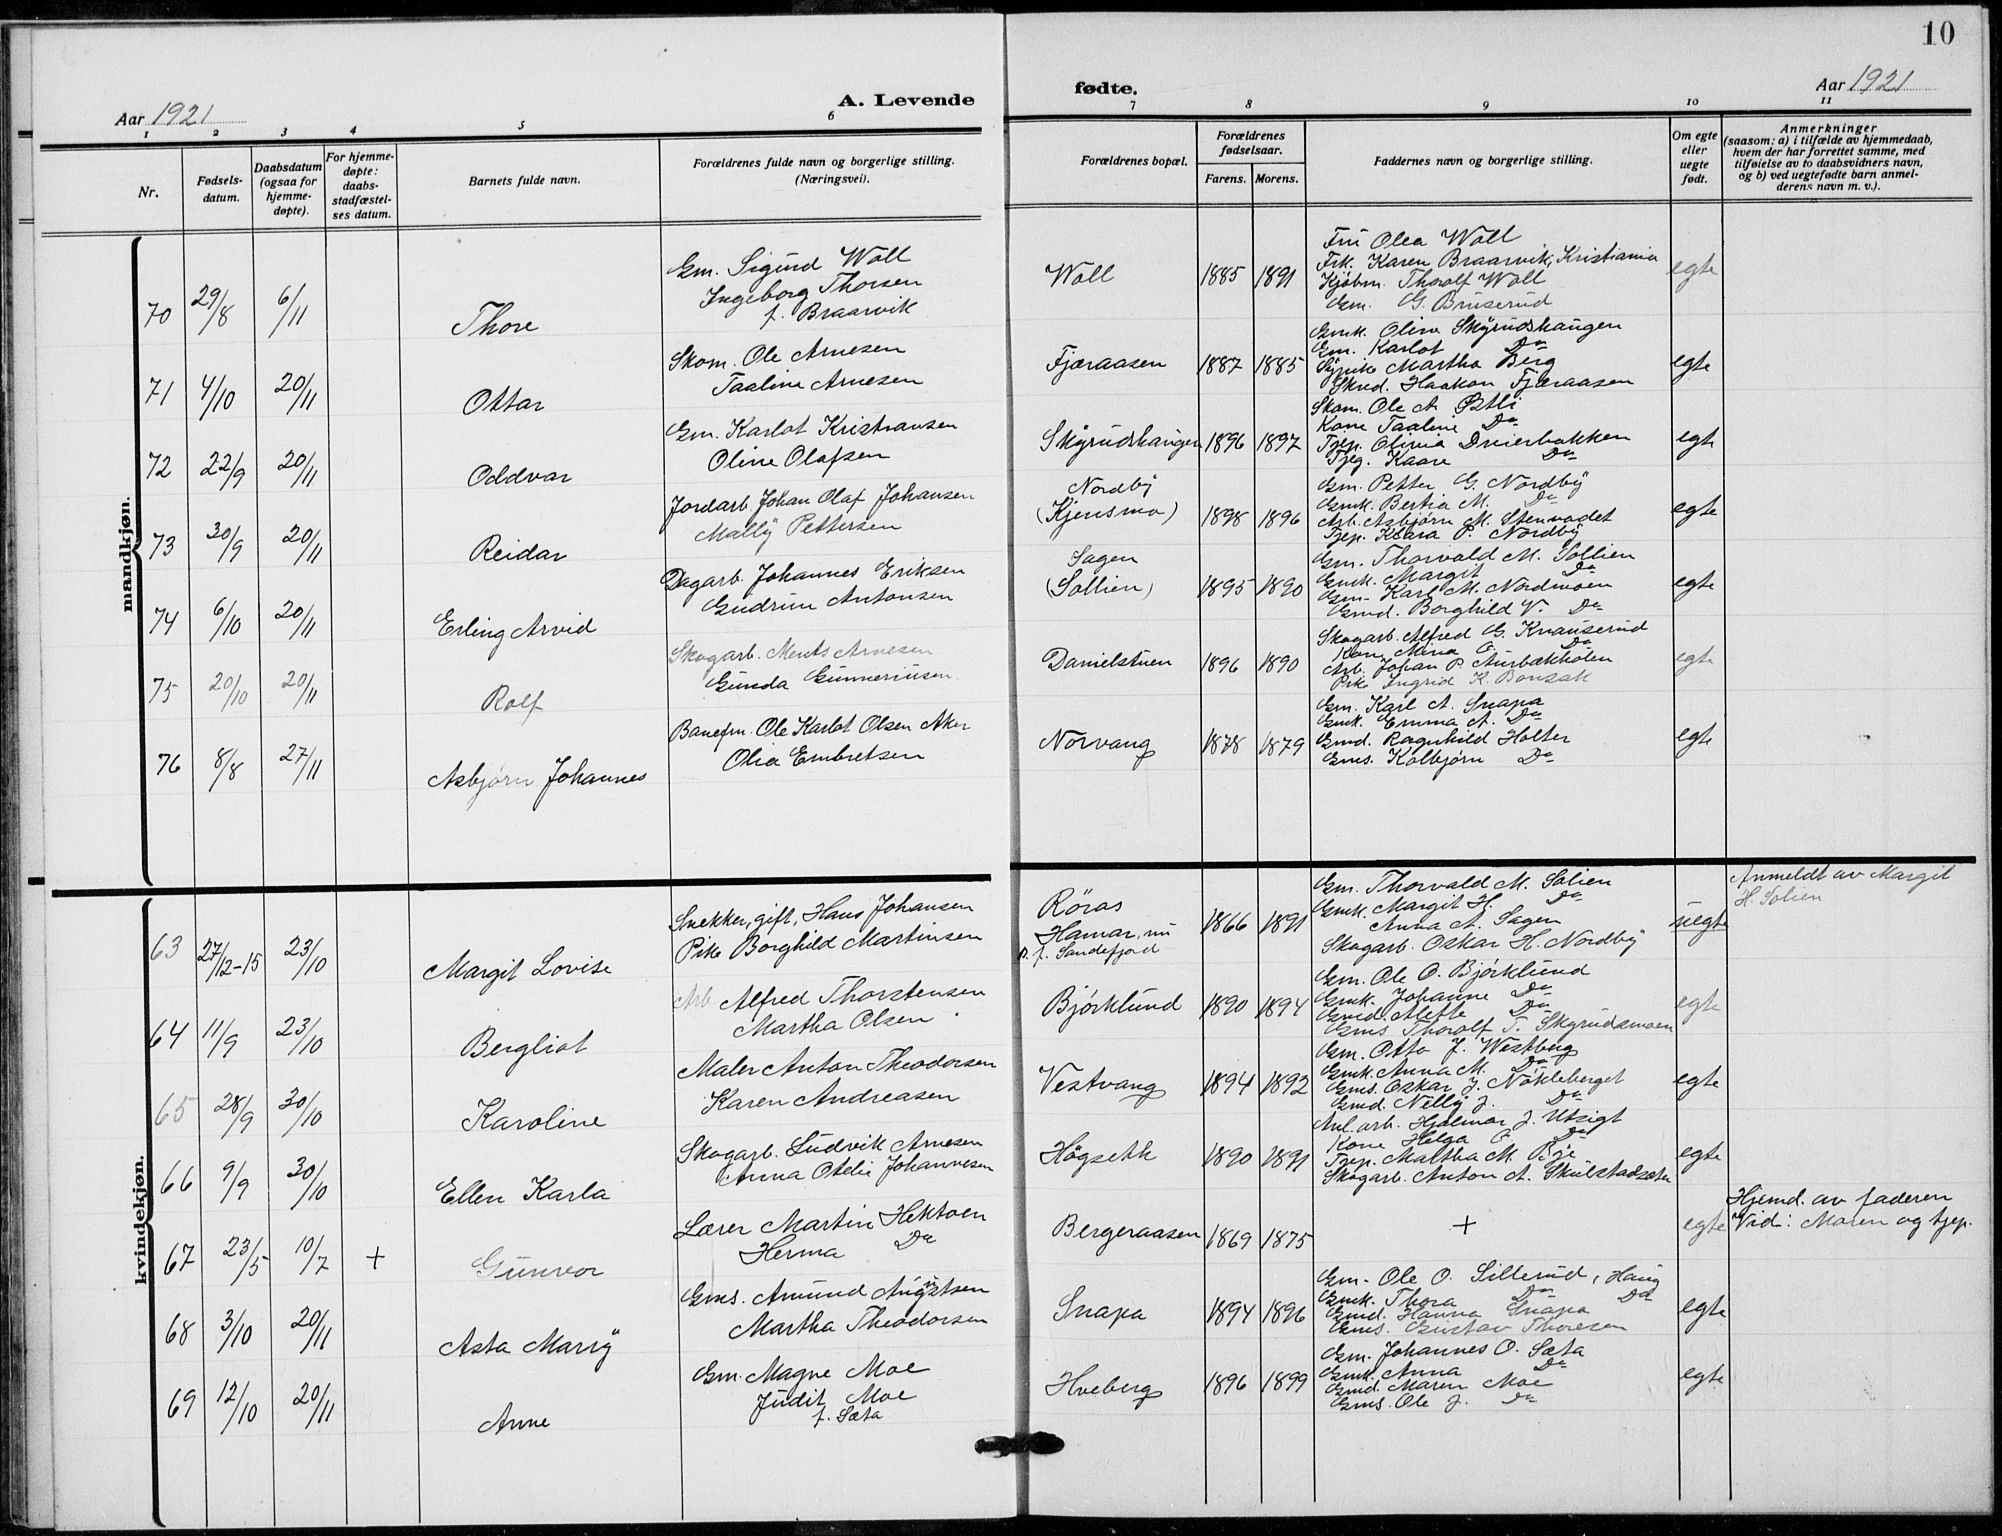 10
Aar 1921
A. Levende
fødte.
Aar 1921
1 2 3 4 5 6 7 8 9 10 11
Nr.
Fødsels-
datum.
Daabsdatum
(ogsaa for
hjemme-
døpte).
For hjemme-
døpte:
daabs-
stadfæstel-
ses datum.
Barnets fulde navn.
Forældrenes fulde navn og borgerlige stilling.
(Næringsvei).
Forældrenes bopæl.
Forældrenes
fødselsaar.
Farens. Morens.
Faddernes navn og borgerlige stilling.
Om egte
eller
uegte
født.
Anmerkninger
(saasom: a) i tilfælde av hjemmedaab,
hvem der har forrettet samme, med
tilføielse av to daabsvidners navn,
og b) ved uegtefødte barn anmel-
derens navn m. v.).
mandkjøn.
70 29/8 6/11 Thore
Gm. Sigurd Woll
Ingeborg Thorsen
f. Braarvik
Woll 1885 1891
Fru Olea Woll
Frk. Karen Braarvik, Kristiania
Kjøbm. Thorolf Woll
Gm. G. Bruserud
egte
71 4/10 20/11 Ottar
Skom. Ole Arnesen
Taaline Arnesen
Fjæraasen 1887 1885
Gmk. Oline Skÿrudshaugen
Gm. Karlot Do
Martha Berg
Skrd. Haakon Fjæraasen
egte
72 22/9 20/11 Oddvar
Gm. Karlot Kristiansen
Oline Olafsen
Skÿrudshaugen 1896 1897
Skom. Ole A. Østli
Kone Taaline Do
Tjep. Olivia Dreierbakken
Tjeg. Kaare Do
egte
73 30/9 20/11 Reidar
Jordarb. Johan Olaf Johansen
Mallÿ Pettersen
Nordbÿ
(Kjensmo) 1898 1896
Gm. Petter G. Nordbÿ
Gmk. Bertia M. Do
Arb. Asbjørn M. Stenvadet
Tjep. Klara P. Nordbÿ
egte
74 6/10 20/11 Erling Arvid
Dagarb. Johannes Eriksen
Gudrun Antonsen
Sagen
(Sollien) 1895 1890
Gm. Thorvald M. Sollien
Gmk. Margit Do
Gm. Karl M. Nordmoen
Gmd. Borghild V. Do
egte
75 20/10 20/11 Rolf
Skogarb. Ments Arnesen
Gunda Gunneriusen
Danielstuen 1896 1890
Skogarb. Alfred G. Knauserud
Kone Mina O. Do
Arb. Johan P. Aurbækhølen
Pike Ingrid K. Bonsak
egte
76 8/8 27/11 Asbjørn Johannes
Banefm. Ole Karlot Olsen Aker
Olia Embretsen
Norvang 1878 1879
Gm. Karl A. Snapa
Gmk. Emma A. Do
Gmd. Ragnhild Holter
Gms. Kolbjørn Do
egte
kvindekjøn.
63 27/12-15 23/10 Margit Lovise
Snekker, gift, Hans Johansen
Pike Borghild Martinsen
Røras
Hamar, nu
p. f. Sandefjord
1866 1891
Gm. Thorvald M. Solien
Gmk. Margit H. Do
Anna A. Sagen
Skogarb. Oskar H. Nordbÿ
uegte
Anmeldt av Margit
H. Solien
64 11/9 23/10 Bergliot
Arb. Alfred Thorstensen
Martha Olsen
Bjørklund 1890 1894
Gm. Ole O. Bjørklund
Gmk. Johanne Do
Gmd. Alette Do
Gms Thorolf T. Skÿrudsmoen
egte
65 28/9 30/10 Karoline
Maler Anton Theodorsen
Karen Andreasen
Vestvang 1894 1892
Gm. Otto J. Westberg
Gmk. Anna M. Do
Gms. Oskar J. Nökleberget
Gmd. Nellÿ J. Do
egte
66 9/9 30/10 Ellen Karla
Skogarb. Ludvik Arnesen
Anna Otelie Johannesen
Høgseth 1890 1891
Anl.arb. Hjalmar J. Utsigt
Kone Helga O. Do
Tjep. Martha M. Bÿe
Skogarb. Anton A. Skulstadsæter
egte
67 23/5 10/7 + Gunvor
Lærer Martin Hektoen
Herma Do
Bergeraasen 1869 1875
+
egte
Hjemd. av faderen
Vid: Maren og tjep.
68 3/10 20/11 Asta Marÿ
Gms. Amund Augustsen
Martha Theodorsen
Snapa 1894 1896
Gm. Ole O. Sillerud, Haug
Gmk. Thora Do Do
Gmd. Hanna Snapa
Gms. Gustav Thoresen
egte
69 12/10 20/11 Anne
Gm. Magne Moe
Judit Moe
f. Sæta
Hveberg 1896 1899
Gm. Johannes O. Sæta
Gmk. Anna Do
Gmd. Maren Moe
Gms. Ole J. Do
egte